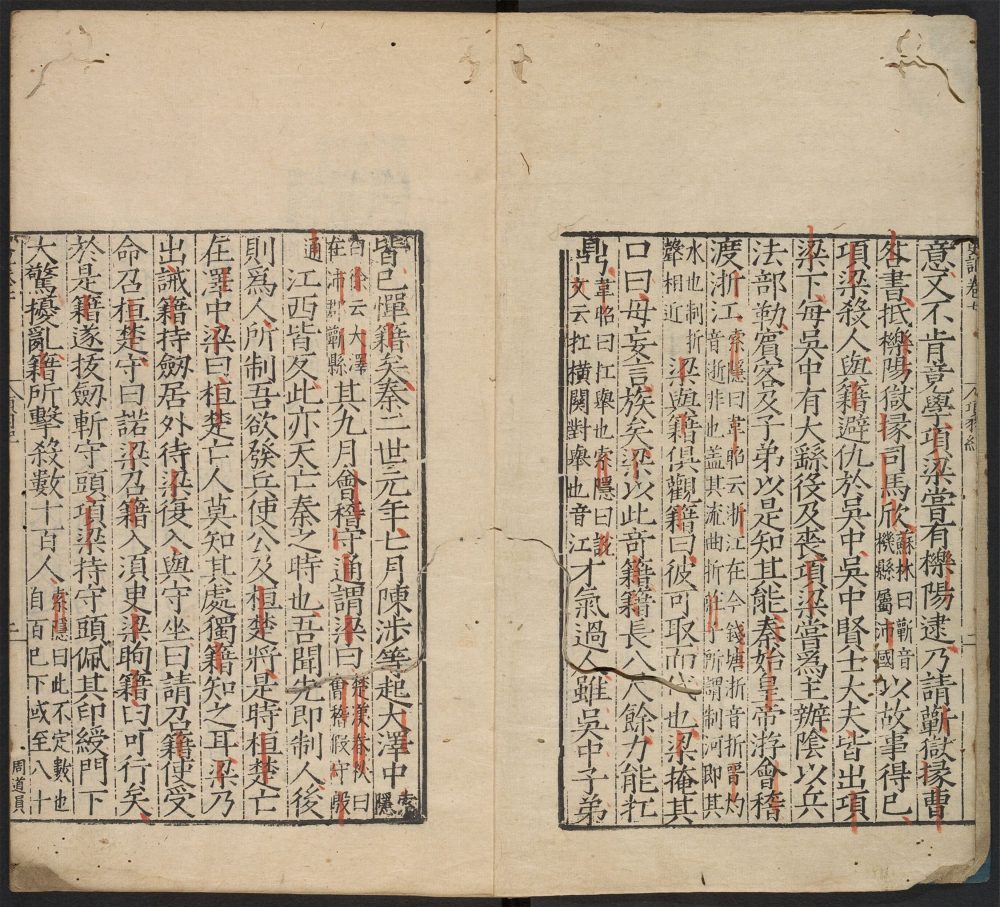 意又不肯竟學項梁嘗有櫟陽逮乃請蘄獄掾曹
咎書抵櫟陽獄掾司馬欣蘇林曰蘄音機縣屬沛國以故事得已
項梁殺人與籍避仇於吳中吳中賢士大夫皆出項
梁下每吳中有大繇役及喪項梁嘗爲主辦陰以兵
法部勒賓客及子弟以是知其能秦始皇帝游會稽
渡浙江索隱曰韋昭云浙江在今錢塘浙音折晉灼音逝非也蓋其流曲折莊子所謂制河即其
水也制折聲相近梁與籍俱觀籍曰彼可取而代也梁掩其
口曰毋妄言族矣梁以此奇籍籍長八尺餘力能扛
鼎韋昭曰扛舉也索隱曰說文云扛橫關對舉也音江才氣過人雖吳中子弟
皆已憚籍矣秦二世元年七月陳涉等起大澤中索隱
曰徐云大澤在沛郡蘄縣其九月會稽守通謂梁曰楚漢春秋曰會稽假守殷
通江西皆反此亦天亡秦之時也吾聞先即制人後
則爲人所制吾欲發兵使公及桓楚將是時桓楚亡
在澤中梁曰桓楚亡人莫知其處獨籍知之耳梁乃
出誡籍持劒居外待梁復入與守坐曰請召籍使受
命召桓楚守曰諾梁召籍入須臾梁眴籍曰可行矣
於是籍遂拔劒斬守頭項梁持守頭佩其印綬門下
大驚擾亂籍所擊殺數十百人索隱曰此不定數也自百已下或至八十
周道員